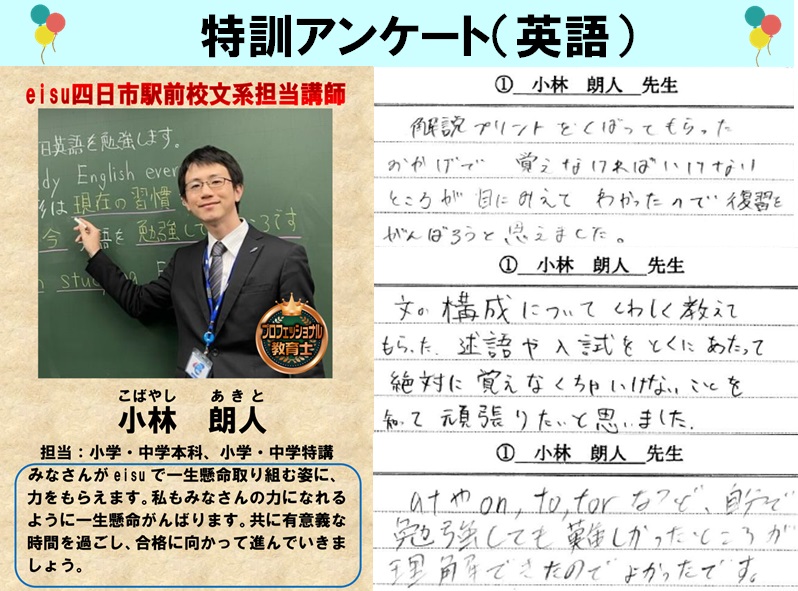 特訓アンケート(英語)
eisu四日市駅前校文系担当講師
日英語を勉強します。
dy English ever
は 現在の習慣
今 語を 勉強して ころです
studying E
プロフェッショナル
教育士
こばやし あきと
小林 朗人
担当:小学・中学本科、小学・中学特講
みなさんがeisuで一生懸命取り組む姿に、
力をもらえます。私もみなさんの力になれる
ように一生懸命がんばります。共に有意義な
時間を過ごし、合格に向かって進んでいきま
しょう。
① 小林 朗人 先生
解説プリントをくばってもらった
おかげで 覚えなければいけない
ところが目にみえて わかったので復習を
がんばろうと思えました。
① 小林 朗人 先生
文の構成について くわしく教えて
もらった。述語や入試をとくにあたって
絶対に覚えなくちゃいけないことを
知って頑張りたいと思いました。
① 小林 朗人 先生
atやon,to,forなど、自分で
勉強しても難しかったところが
理解できたのでよかったです。